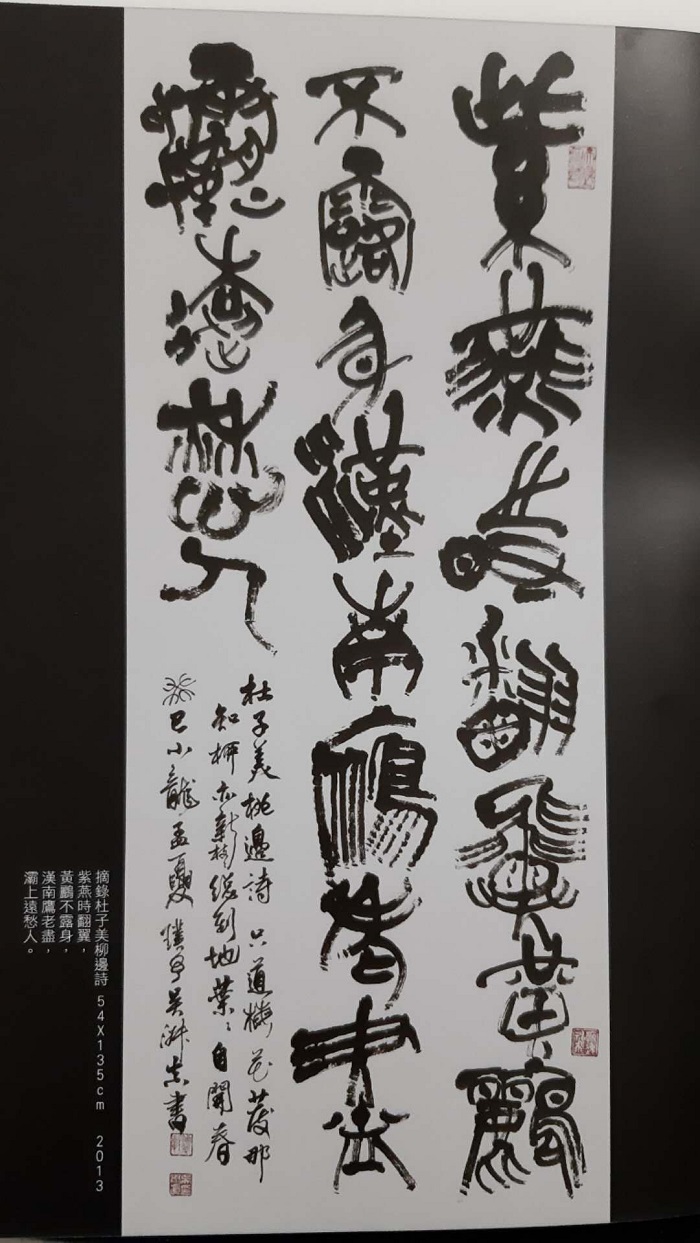 紫燕時翻翼黃鸝
不露身漢南鷹老盡
灞上遠愁人
杜子美柳邊詩 只道梅花發那
知柳亦新枝〻總到地葉〻自開春
癸巳小龍孟夏 吳書
摘錄杜子美柳邊詩 54X135cm 2013
紫燕時翻翼，
黃鸝不露身，
漢南鷹老盡，
灞上遠愁人。